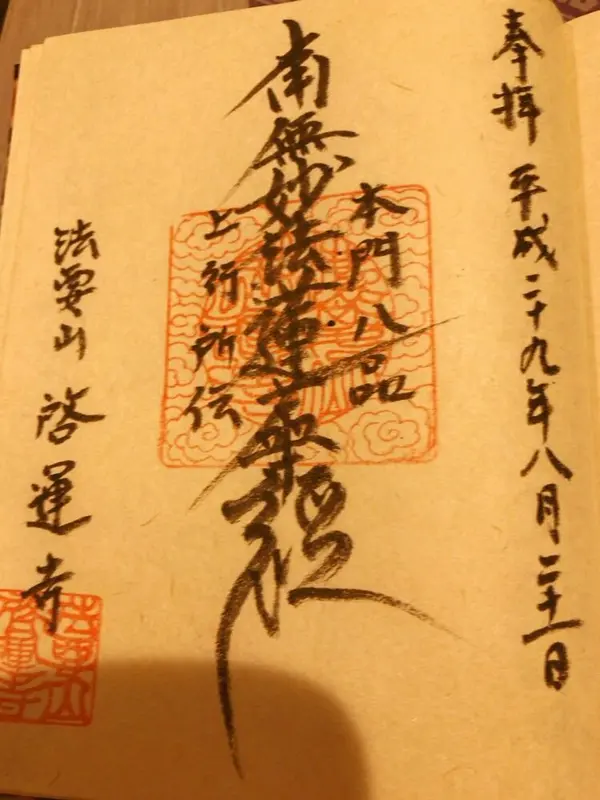 奉拝 平成二十九年八月二十一日
本門八品
南無妙法蓮華経
上行所伝
法要山 啓運寺